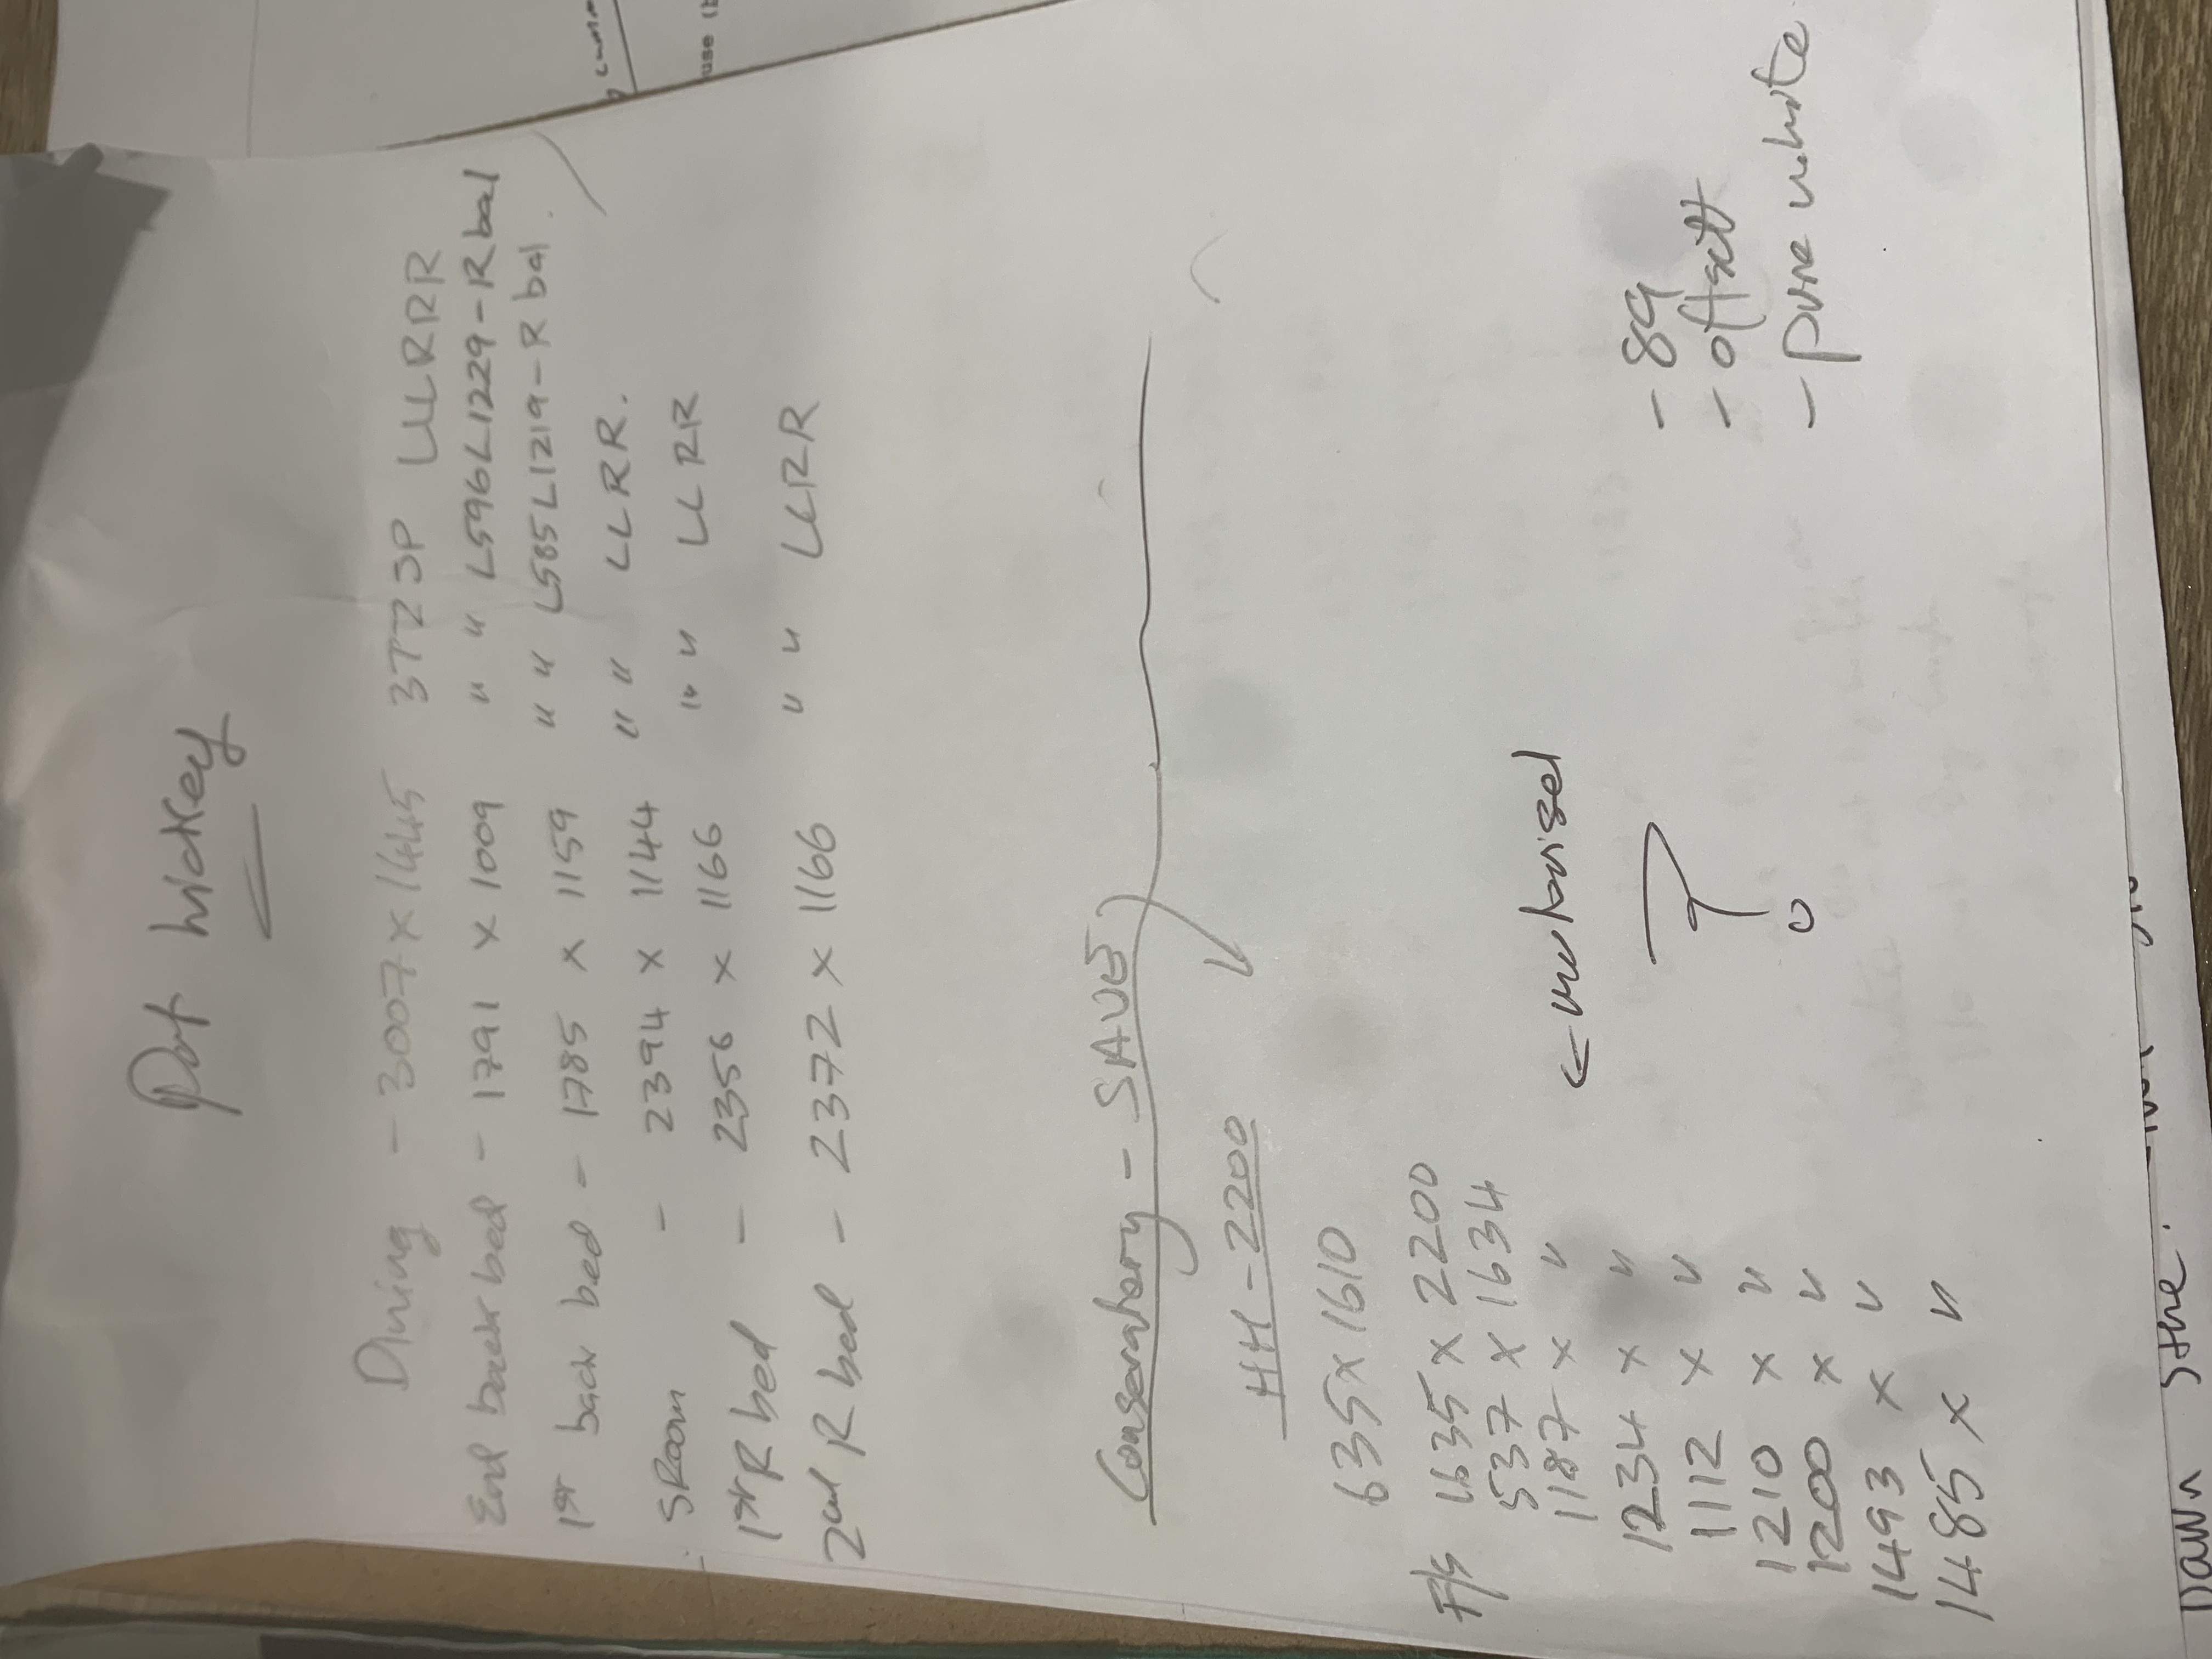 Pat Hickey
Dining - 3007 x 1445 3TZ3P LLLRRR
End back bed - 1791 x 1009 " " L596L1229-Rbal
1st back bed - 1785 x 1159 " " L585L1219-Rbal.
SRoom - 2394 x 1144 " " LLRR.
1st R bed - 2356 x 1166 " " LLRR
2nd R bed - 2372 x 1166 " " LLRR
Conservatory - SAVE
HH-2200
635 x 1610
F/S 1635 x 2200
537 x 1634
1187 x "
1234 x "
1112 x "
1210 x "
1200 x "
1493 x "
1485 x "
motorised
?
- 89
- offsett
- pure white
Dawn
use